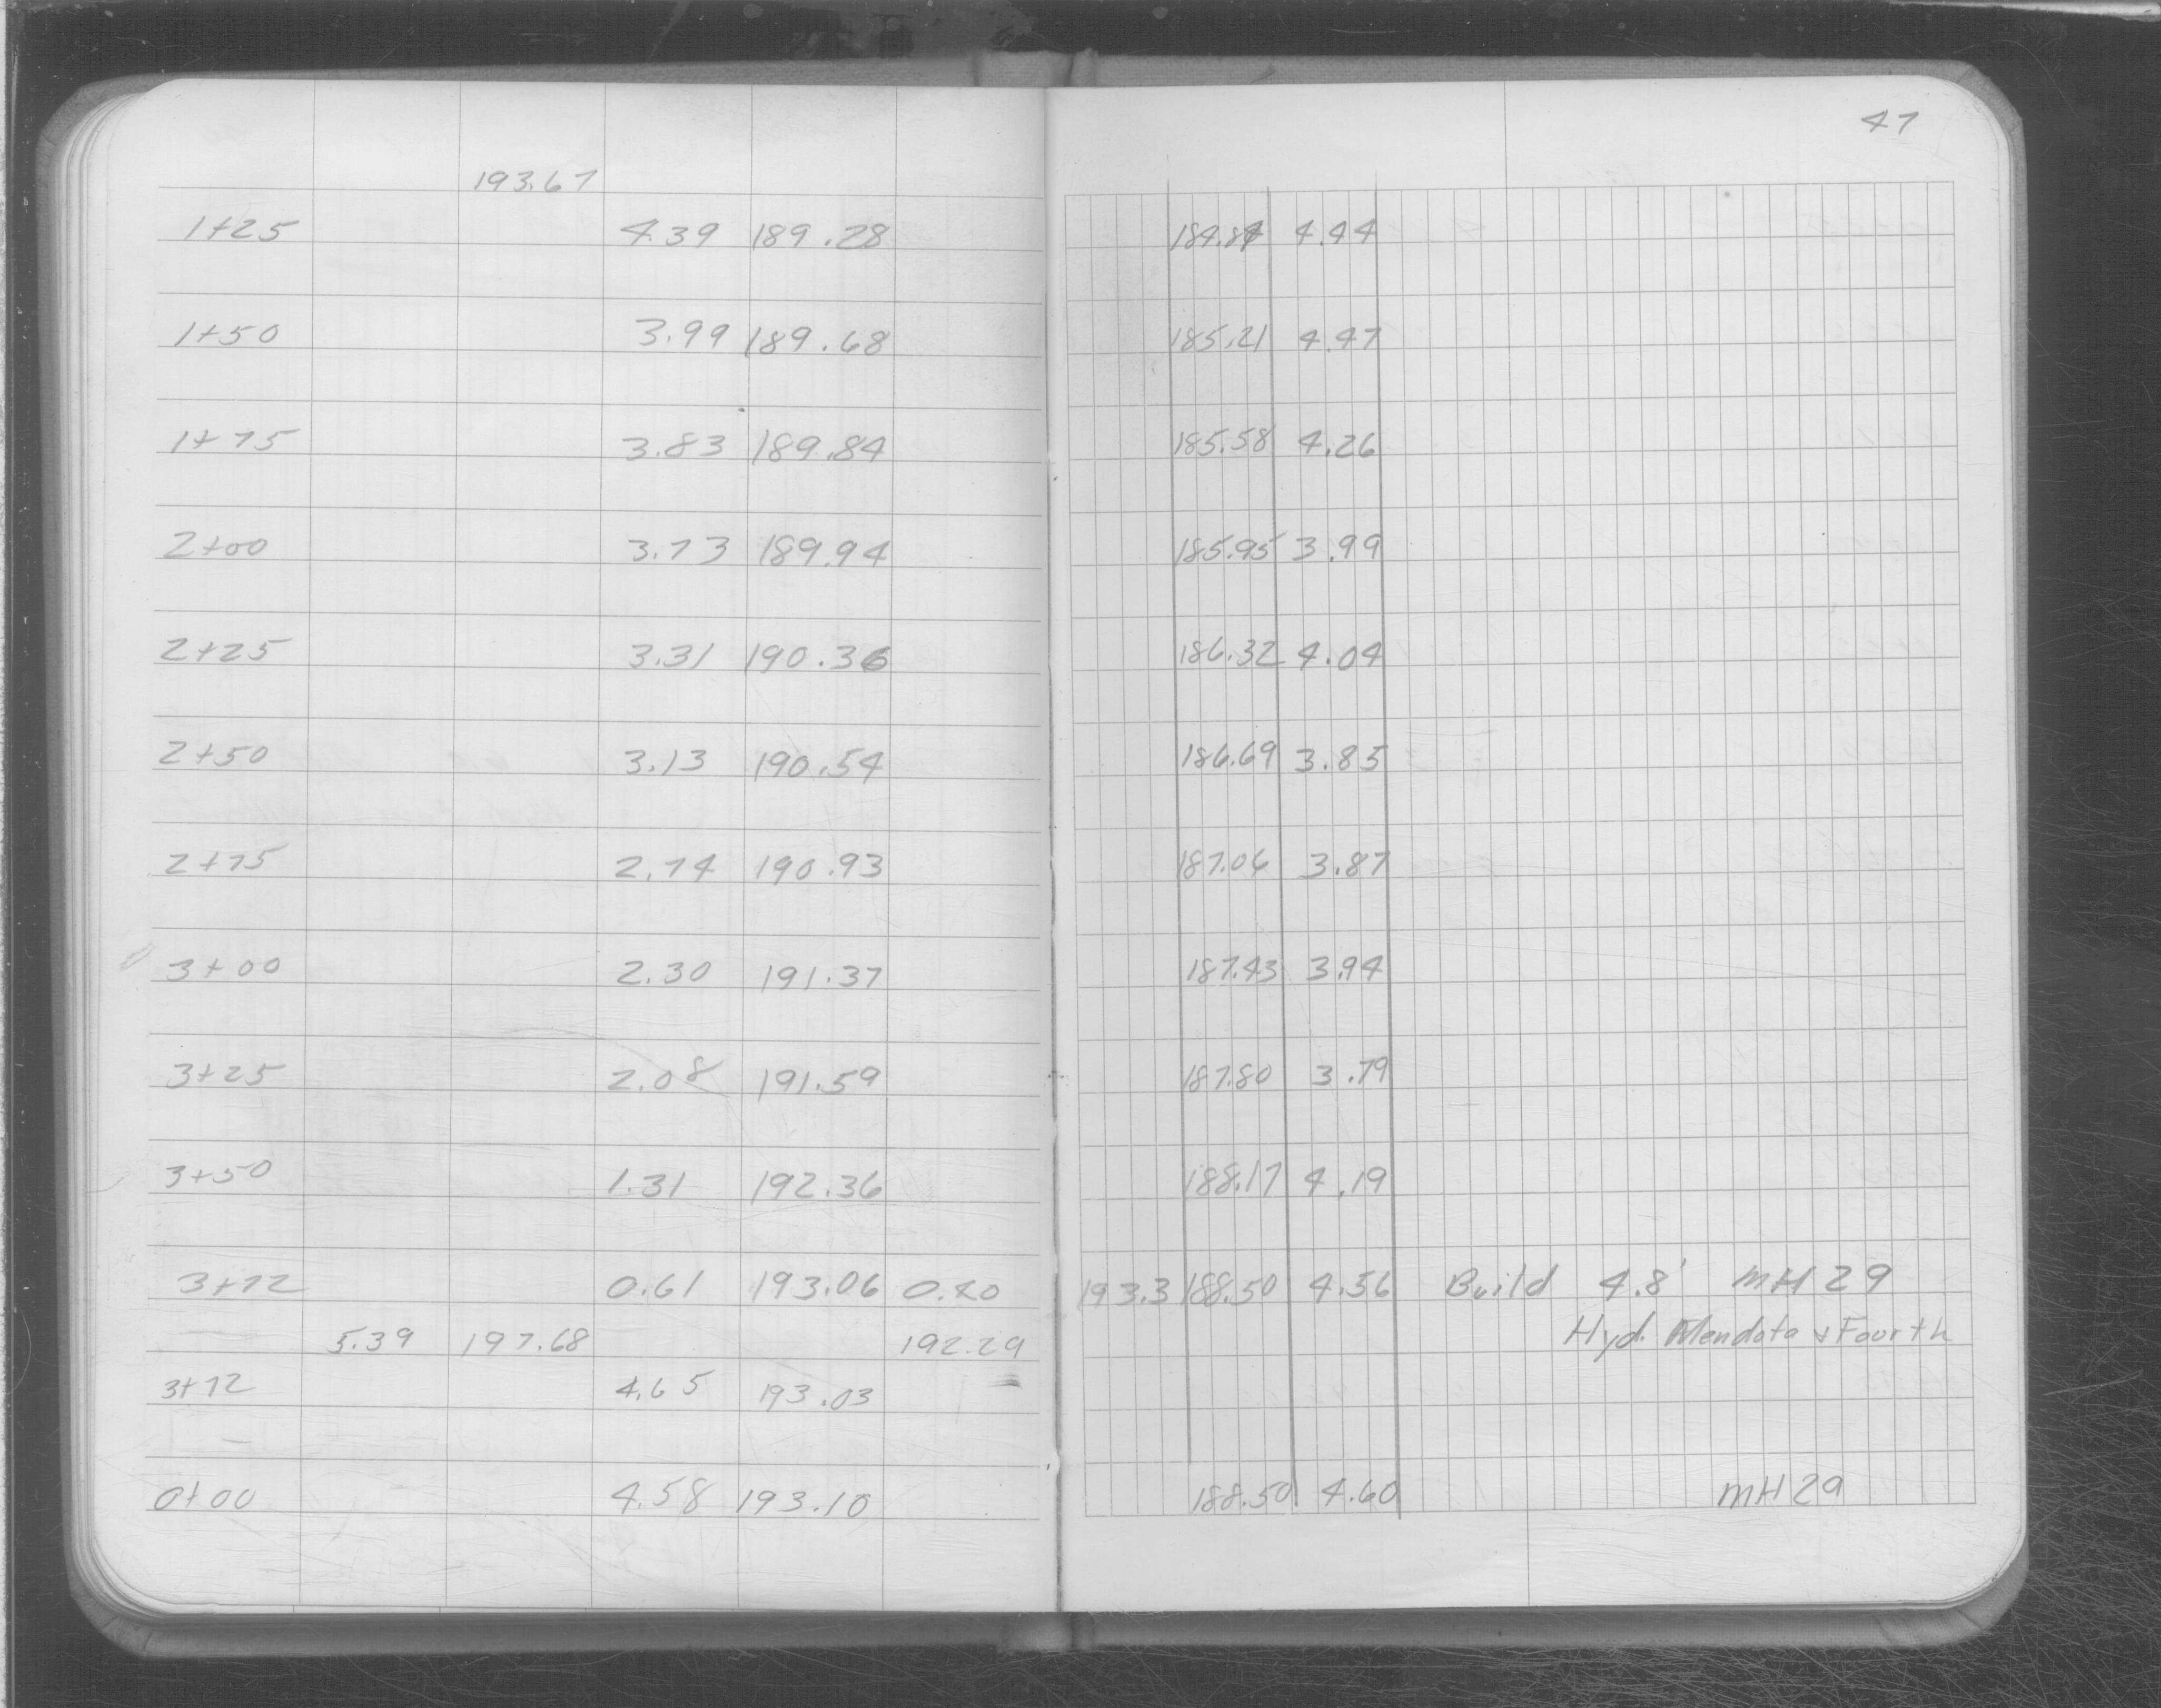 47
193.67
1+25 4.39 189.28 184.84 4.44
1+50 3.99 189.68 185.21 4.47
1+75 3.83 189.84 185.58 4.26
2+00 3.73 189.94 185.95 3.99
2+25 3.31 190.36 186.32 4.04
2+50 3.13 190.54 186.69 3.85
2+75 2.74 190.93 187.06 3.87
3+00 2.30 191.37 187.43 3.94
3+25 2.08 191.59 187.80 3.79
3+50 1.31 192.36 188.17 4.19
3+72 0.61 193.06 0.40 193.3 188.50 4.56 Build 4.8' MH 29
5.39 197.68 192.29 Hyd. Mendota & Fourth
3+72 4.65 193.03
0+00 4.58 193.10 188.50 4.60 MH 29